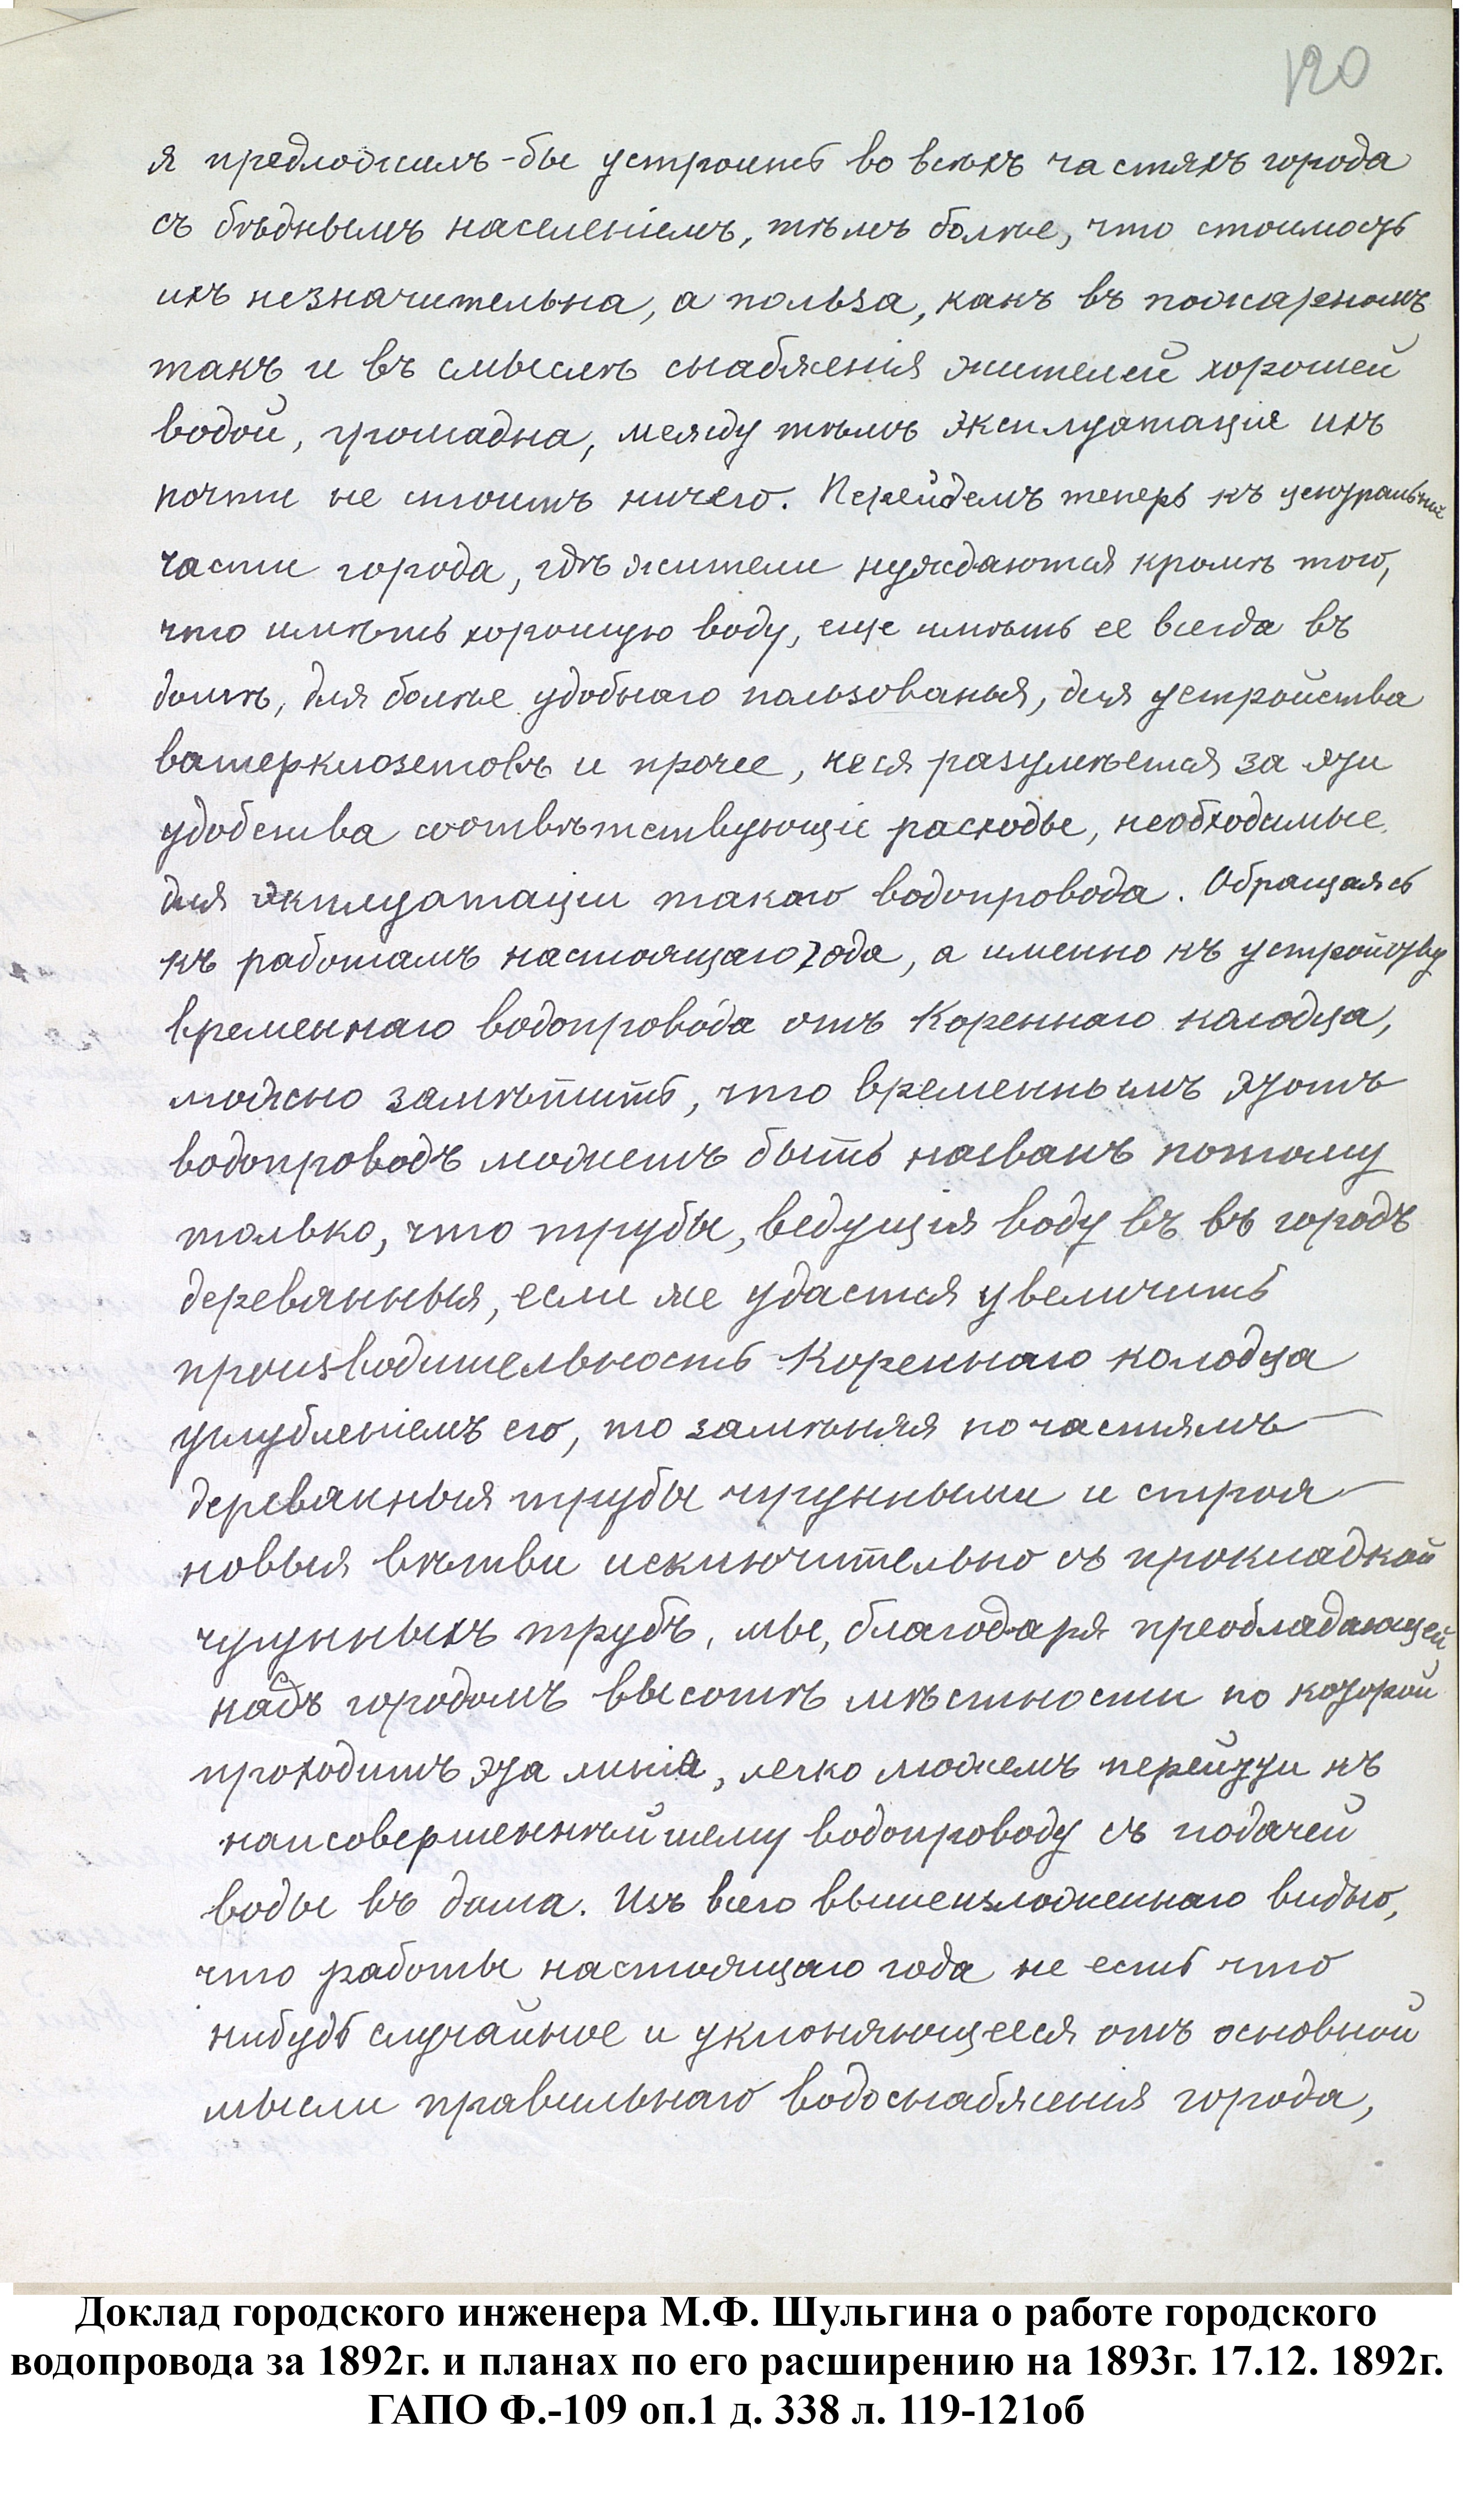 120
я предложилъ-бы устроить во всѣхъ частяхъ города
съ бѣднымъ населеніемъ, тѣмъ болѣе, что стоимость
ихъ незначительна, а польза, какъ въ пожарномъ
такъ и въ смыслѣ снабженія жителей хорошей
водой, громадна, между тѣмъ эксплуатація ихъ
почти не стоитъ ничего. Перейдемъ теперь къ центральной
части города, гдѣ жители нуждаются кромѣ того,
что имѣть хорошую воду, еще имѣть ее всегда въ
домѣ, для болѣе удобнаго пользованья, для устройства
ватерклозетовъ и прочее, неся разумѣется за эти
удобства соотвѣтствующіе расходы, необходимые
для эксплуатаціи такого водопровода. Обращаясь
къ работамъ настоящаго года, а именно къ устройству
временнаго водопровода отъ Кореннаго колодца,
можно замѣтить, что временнымъ этотъ
водопроводъ можетъ быть названъ потому
только, что трубы, ведущія воду въ въ городъ
деревянныя, если же удастся увеличить
производительность Кореннаго колодца
углубленіемъ его, то замѣняя по частямъ
деревянныя трубы чугунными и строя
новыя вѣтви исключительно съ прокладкой
чугунныхъ трубъ, мы, благодаря преобладающей
надъ городомъ высотѣ мѣстности по которой
проходитъ эта линія, легко можемъ перейти къ
наисовершеннѣйшему водопроводу съ подачей
воды въ дома. Изъ всего вышеизложеннаго видно,
что работы настоящаго года не есть что
нибудь случайное и уклоняющееся отъ основной
мысли правильнаго водоснабженія города,
Доклад городского инженера М.Ф. Шульгина о работе городского
водопровода за 1892г. и планах по его расширению на 1893г. 17.12. 1892г.
ГАПО Ф.-109 оп.1 д. 338 л. 119-121об